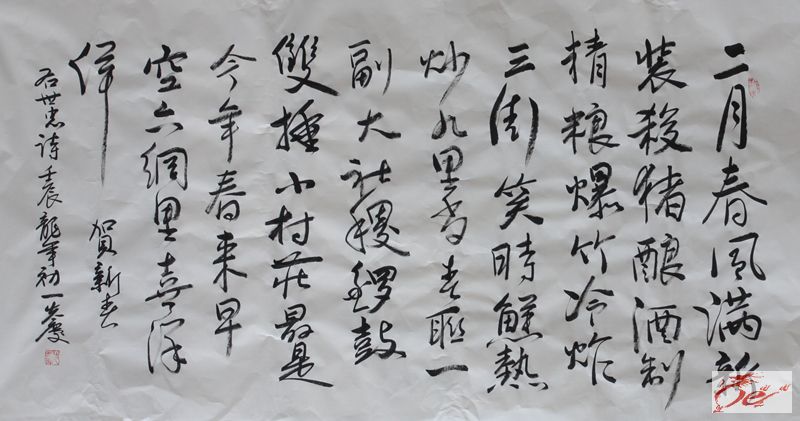 二月春風满新
装殺猪釀酒制
精粮爆竹冷炸
三街笑時鮮熱
炒九里香春联一
副大社稷鑼鼓
雙捶小村莊最是
今年春来早
空網里喜洋
洋 賀新春
石世忠诗壬辰龍年初一慶